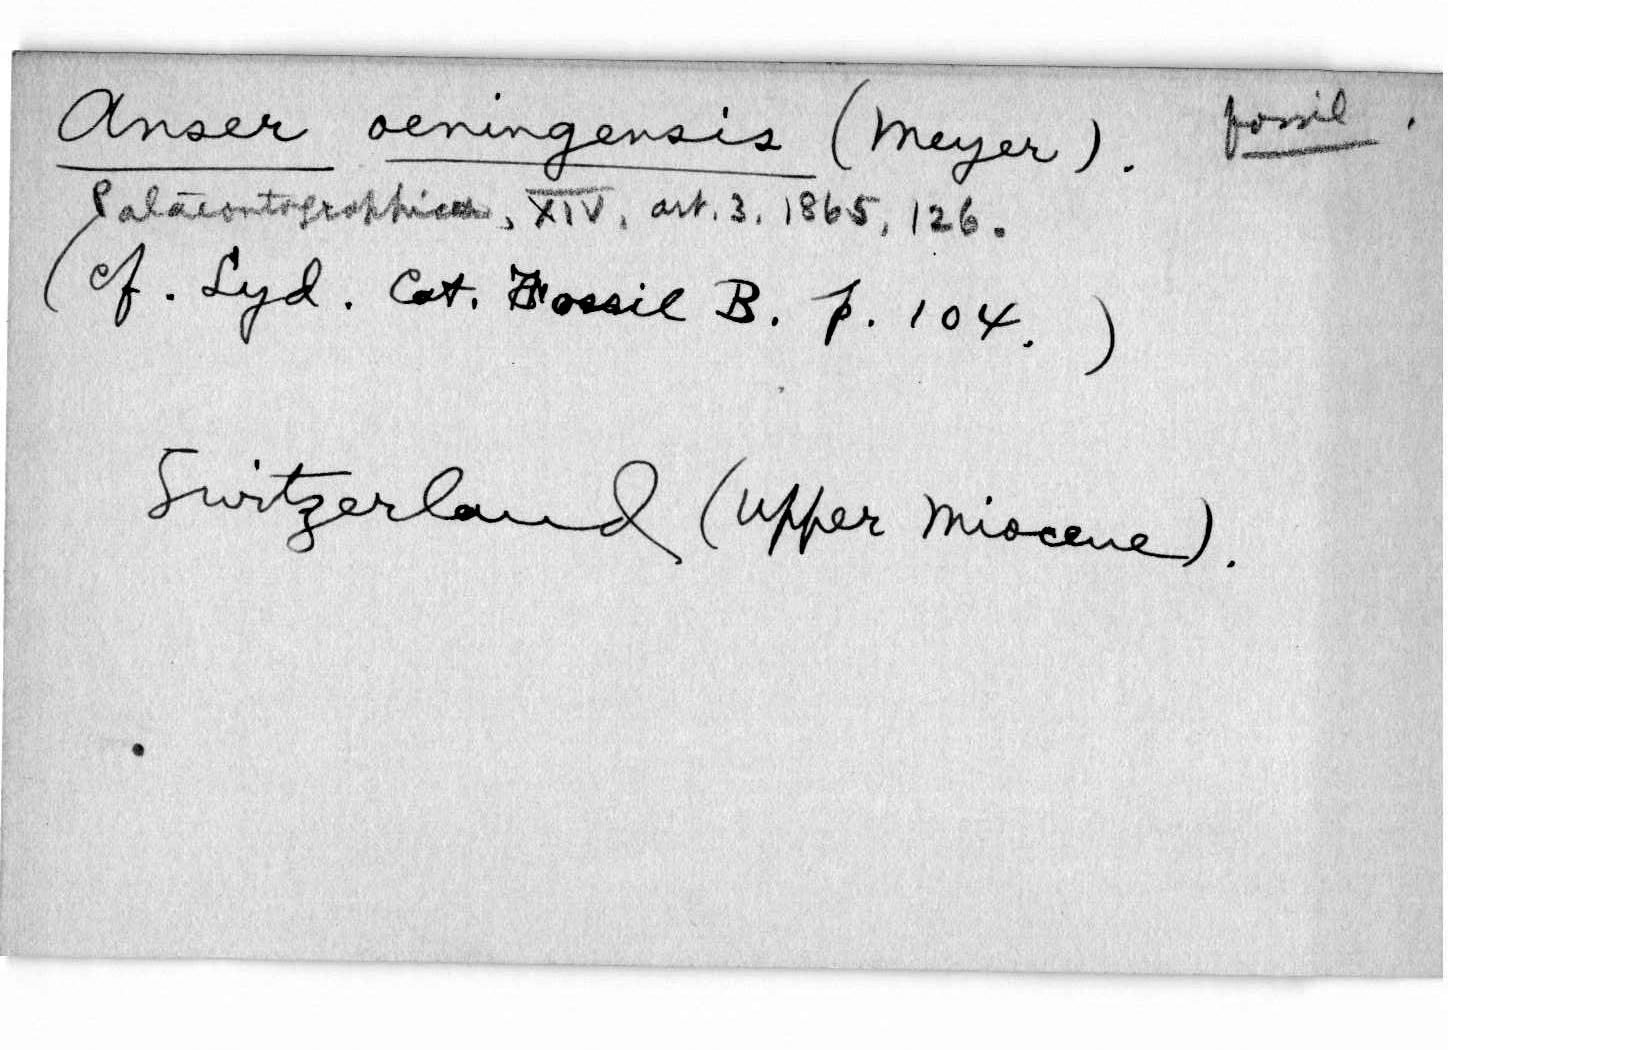 Anser oeningensis (Meyer). fossil.
Palaeontographica, XIV, art. 3. 1865, 126.
(cf. Lyd. Cat. Fossil B. p. 104.)
Switzerland (Upper Miocene).